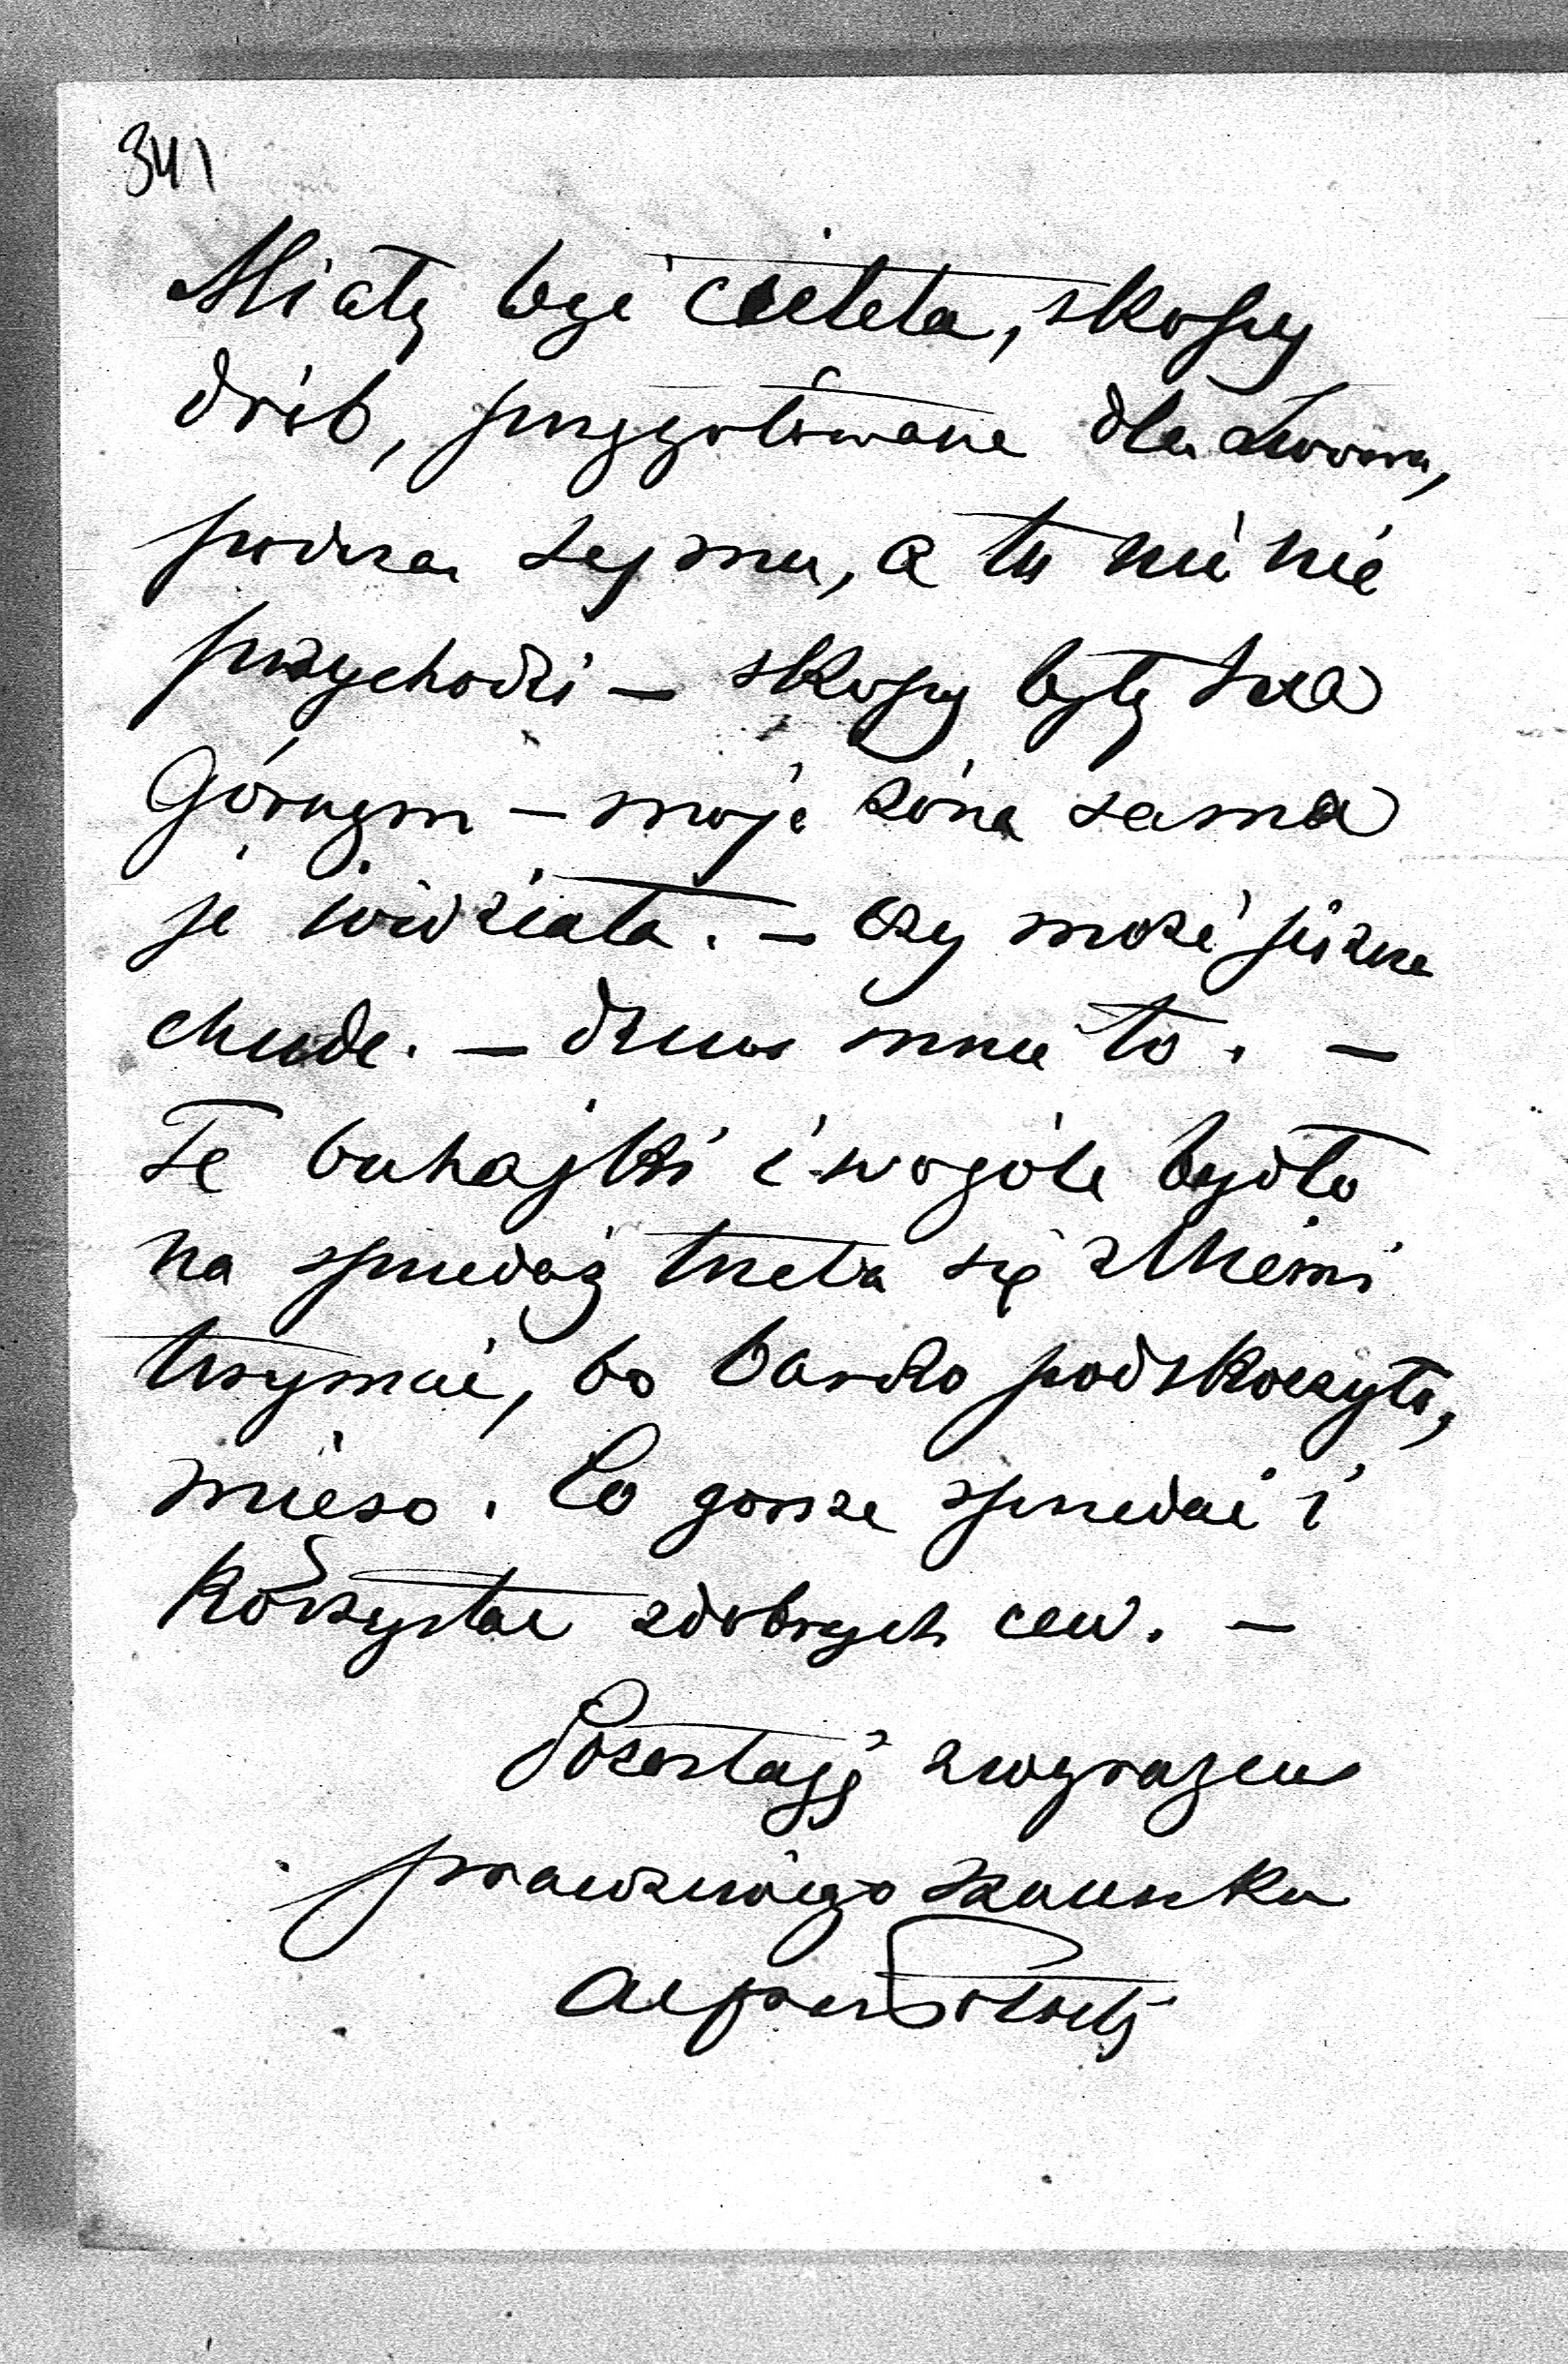 341
Miały być cielęta, skopy
drób, przygotowane dla Lwowa,
podczas sejmu, a tu nic nie
przychodzi – skopy były na
Górnym – moja żona sama
je widziała. – czy może już za
chude. – dziwi mnie to. –
Te buhajki i wogóle bydło
na sprzedaż trzeba się z niemi
trzymać, bo bardzo podskoczyło,
mięso. Co gorsze sprzedać i
korzystać z dobrych cen. –
Pozostaję z wyrazem
prawdziwego szacunku
Potocki